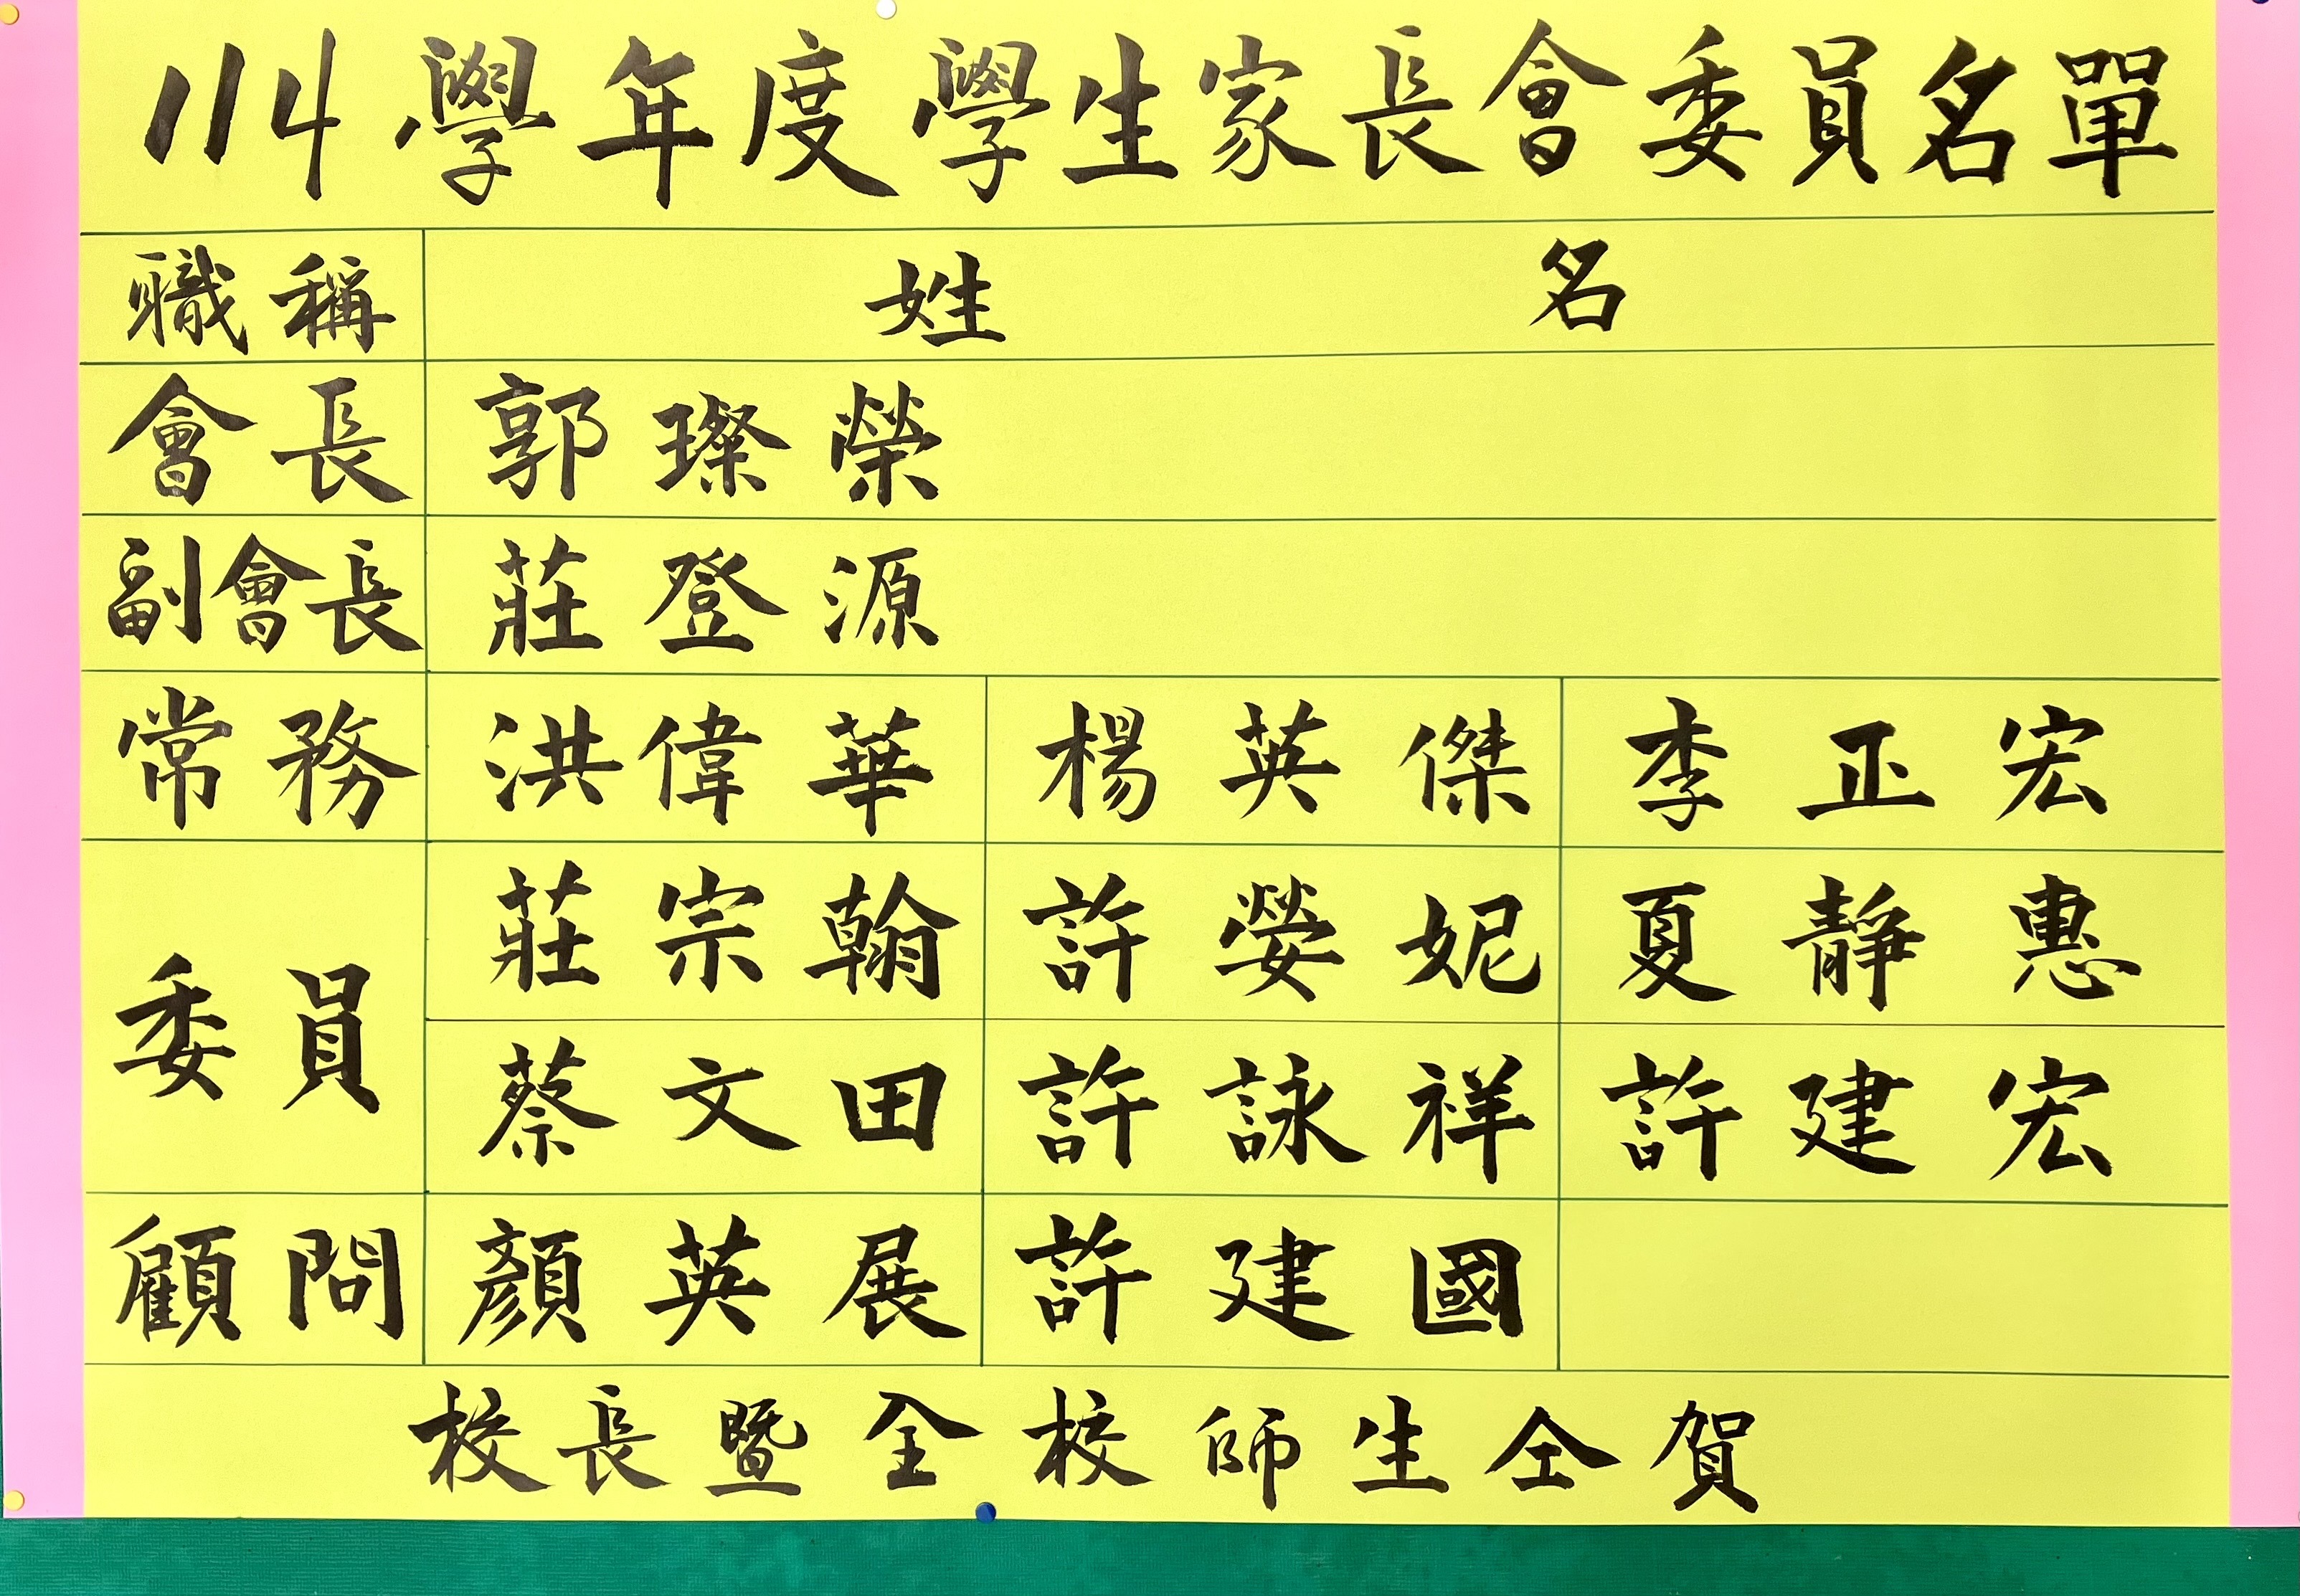 114學年度學生家長會委員名單
職稱 姓名
會長 郭璨榮
副會長 莊登源
常務 洪偉華 楊英傑 李正宏
委員 莊宗翰 許嫈妮 夏靜惠
蔡文田 許詠祥 許建宏
顧問 顏英展 許建國
校長暨全校師生仝賀